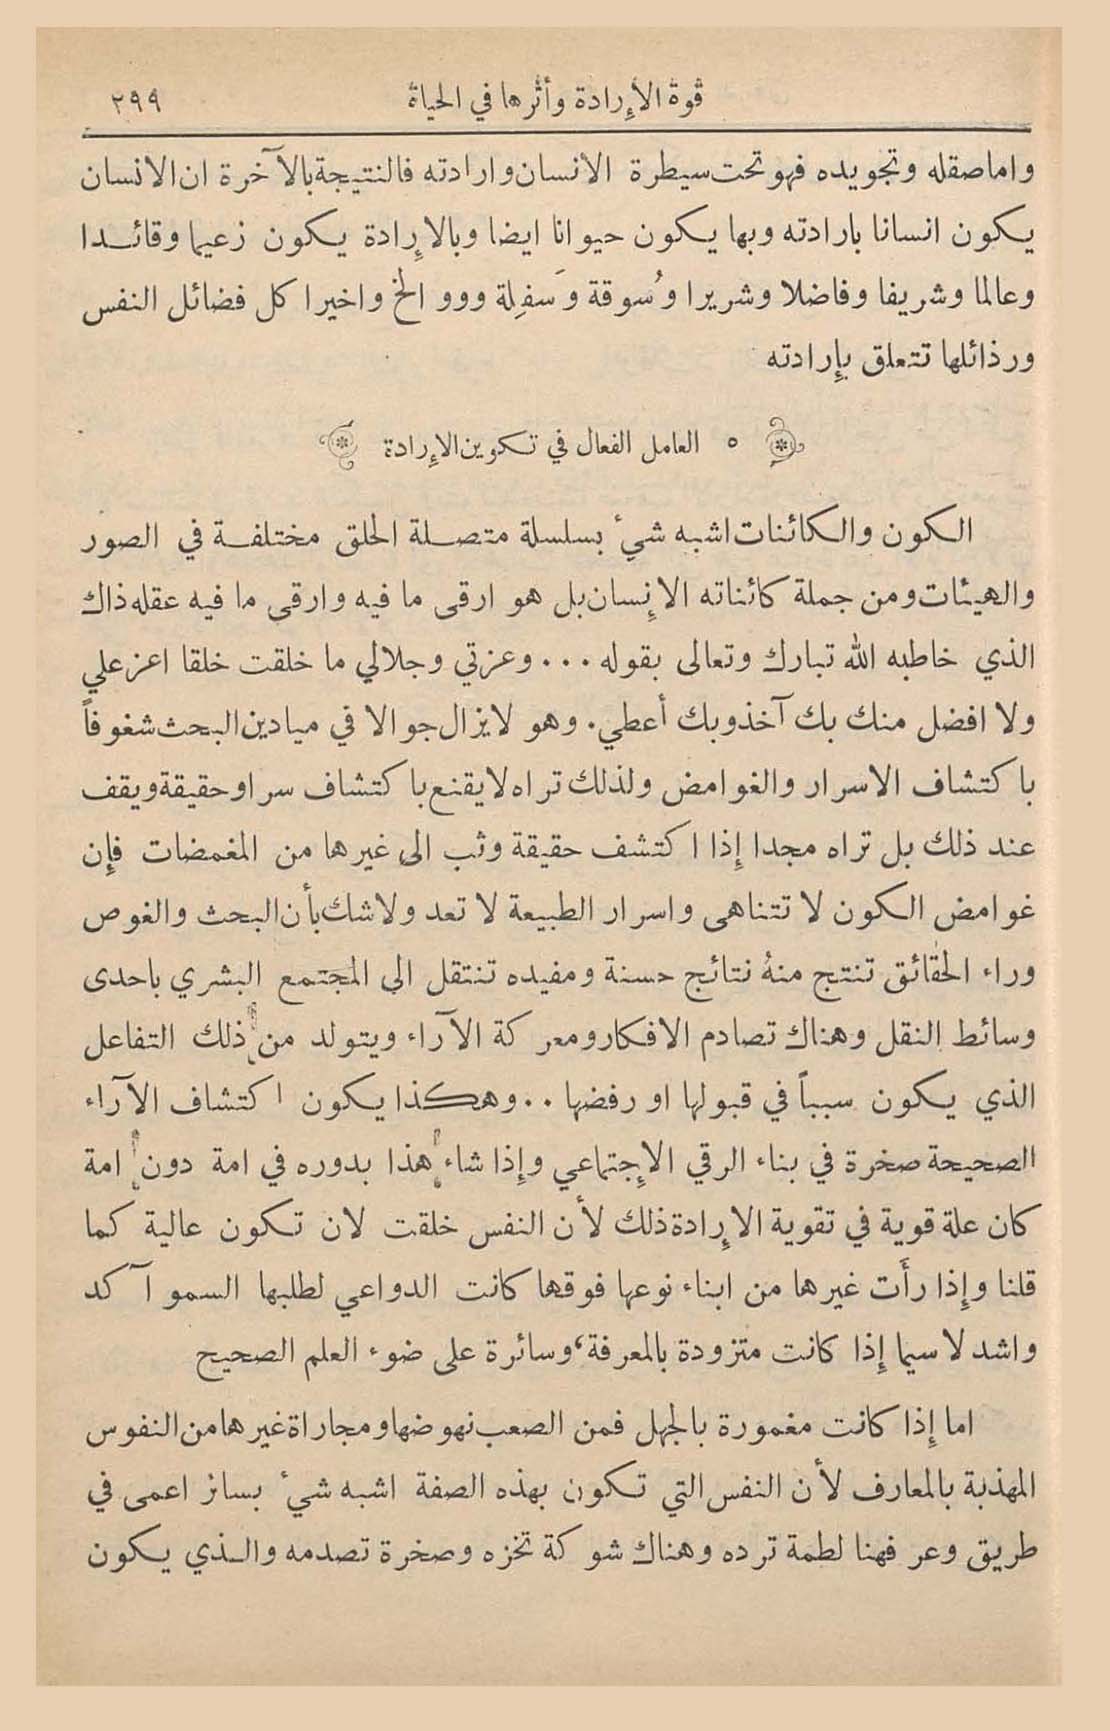 قوة الإرادة وأثرها في الحياة ٢٩٩
واما صقله وتجويده فهو تحت سيطرة الانسان وارادته فالنتيجة بالآخرة ان الانسان
يكون انسانا بارادته وبها يكون حيوانا ايضا وبالإرادة يكون زعيما وقائدا
وعالما وشريفا وفاضلا وشريرا وسُوقة وسَفِلة ووو الخ واخيرا كل فضائل النفس
ورذائلها تتعلق بإرادته
٥ العامل الفعال في تكوين الإرادة
الكون والكائنات اشبه شيء بسلسلة متصلة الحلق مختلفة في الصور
والهيئات ومن جملة كائناته الإنسان بل هو ارقى ما فيه وارقى ما فيه عقله ذاك
الذي خاطبه الله تبارك وتعالى بقوله ... وعزتي وجلالي ما خلقت خلقا اعز علي
ولا افضل منك بك آخذ وبك أعطي. وهو لا يزال جوالا في ميادين البحث شغوفاً
باكتشاف الاسرار والغوامض ولذلك تراه لا يقنع باكتشاف سر او حقيقة ويقف
عند ذلك بل تراه مجدا إذا اكتشف حقيقة وثب الى غيرها من المغمضات فإن
غوامض الكون لا تتناهى واسرار الطبيعة لا تعد ولا شك بأن البحث والغوص
وراء الحقائق تنتج منهُ نتائج حسنة ومفيده تنتقل الى المجتمع البشري باحدى
وسائط النقل وهناك تصادم الافكار ومعركة الآراء ويتولد من ذلك التفاعل
الذي يكون سبباً في قبولها او رفضها .. وهكذا يكون اكتشاف الآراء
الصحيحة صخرة في بناء الرقي الإجتماعي وإذا شاء هذا بدوره في امة دون امة
كان علة قوية في تقوية الإرادة ذلك لأن النفس خلقت لان تكون عالية كما
قلنا وإذا رأَت غيرها من ابناء نوعها فوقها كانت الدواعي لطلبها السمو آكد
واشد لا سيما إذا كانت متزودة بالمعرفة، وسائرة على ضوء العلم الصحيح
اما إذا كانت مغمورة بالجهل فمن الصعب نهوضها ومجاراة غيرها من النفوس
المهذبة بالمعارف لأن النفس التي تكون بهذه الصفة اشبه شيء بسائر اعمى في
طريق وعر فهنا لطمة ترده وهناك شوكة تخزه وصخرة تصدمه والذي يكون